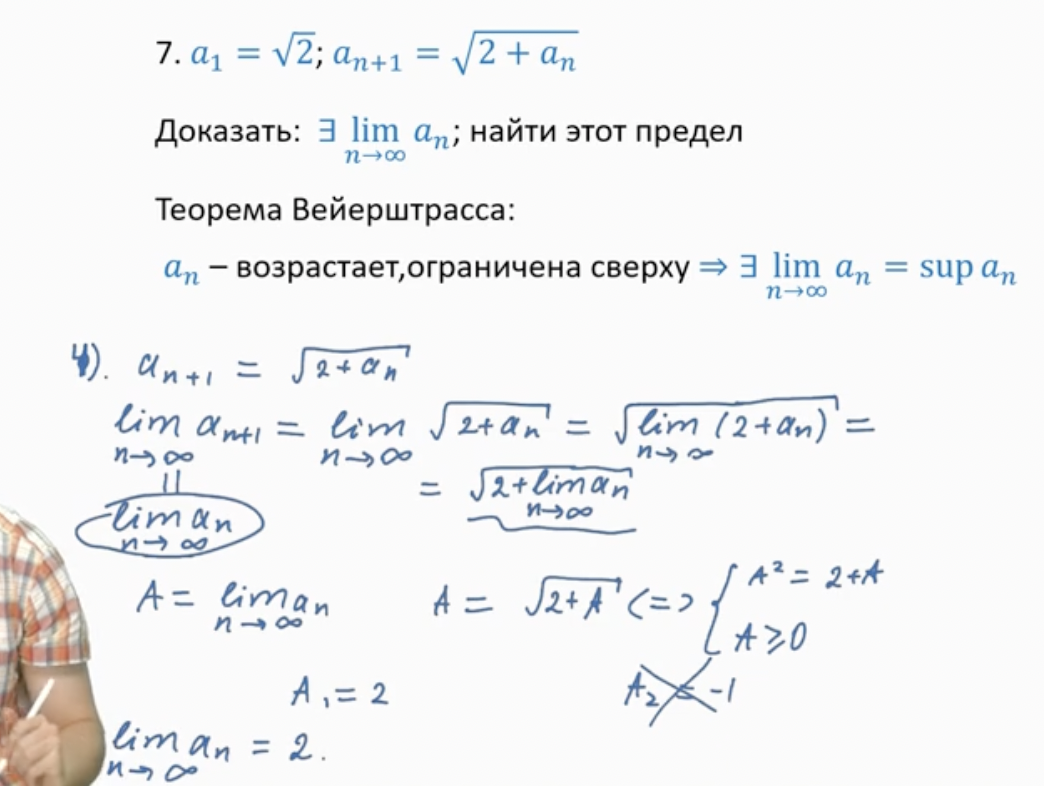 7. a₁ = √2; aₙ₊₁ = √(2 + aₙ)
Доказать: ∃ lim aₙ; найти этот предел
n→∞
Теорема Вейерштрасса:
aₙ – возрастает,ограничена сверху ⇒ ∃ lim aₙ = sup aₙ
n→∞
4). aₙ₊₁ = √(2 + aₙ)
lim aₙ₊₁ = lim √(2+aₙ) = √(lim (2+aₙ)) =
n→∞ n→∞ n→∞
|| = √(2+lim aₙ)
n→∞
lim aₙ
n→∞
A = lim aₙ A = √(2+A) <=> { A² = 2+A
n→∞ A ⩾ 0
A₁ = 2 A₂ = -1
lim aₙ = 2.
n→∞